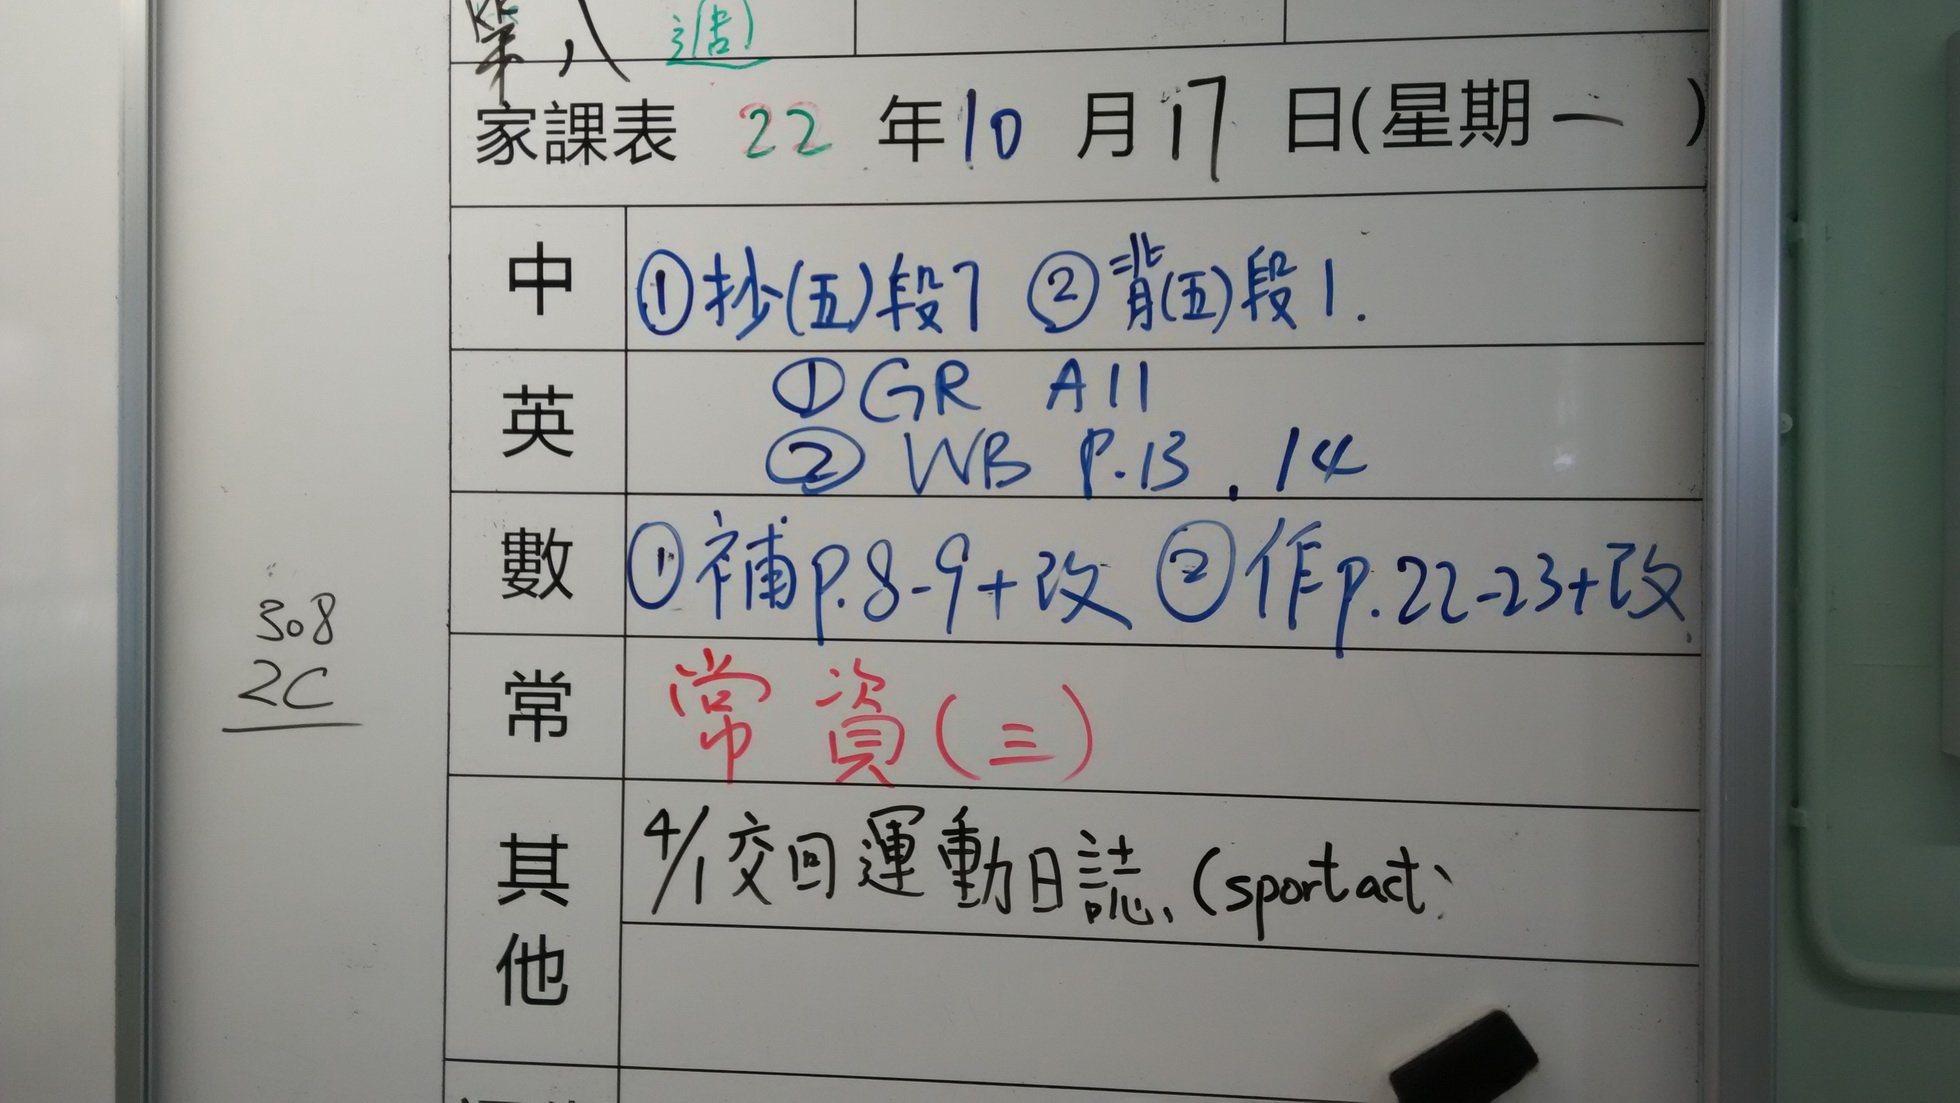 第八週
家課表 22 年10 月17 日(星期一 )
中 ①抄(五)段7 ②背(五)段1.
英 ①GR All
②WB P.13 . 14
數 ①補p.8-9+改 ②作p.22-23+改
308
2C
常 常資(三)
其他 4/1交回運動日誌, (sport act